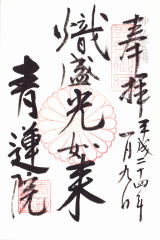 奉拝
平成二十四年
一月九日
熾盛光如来
青蓮院